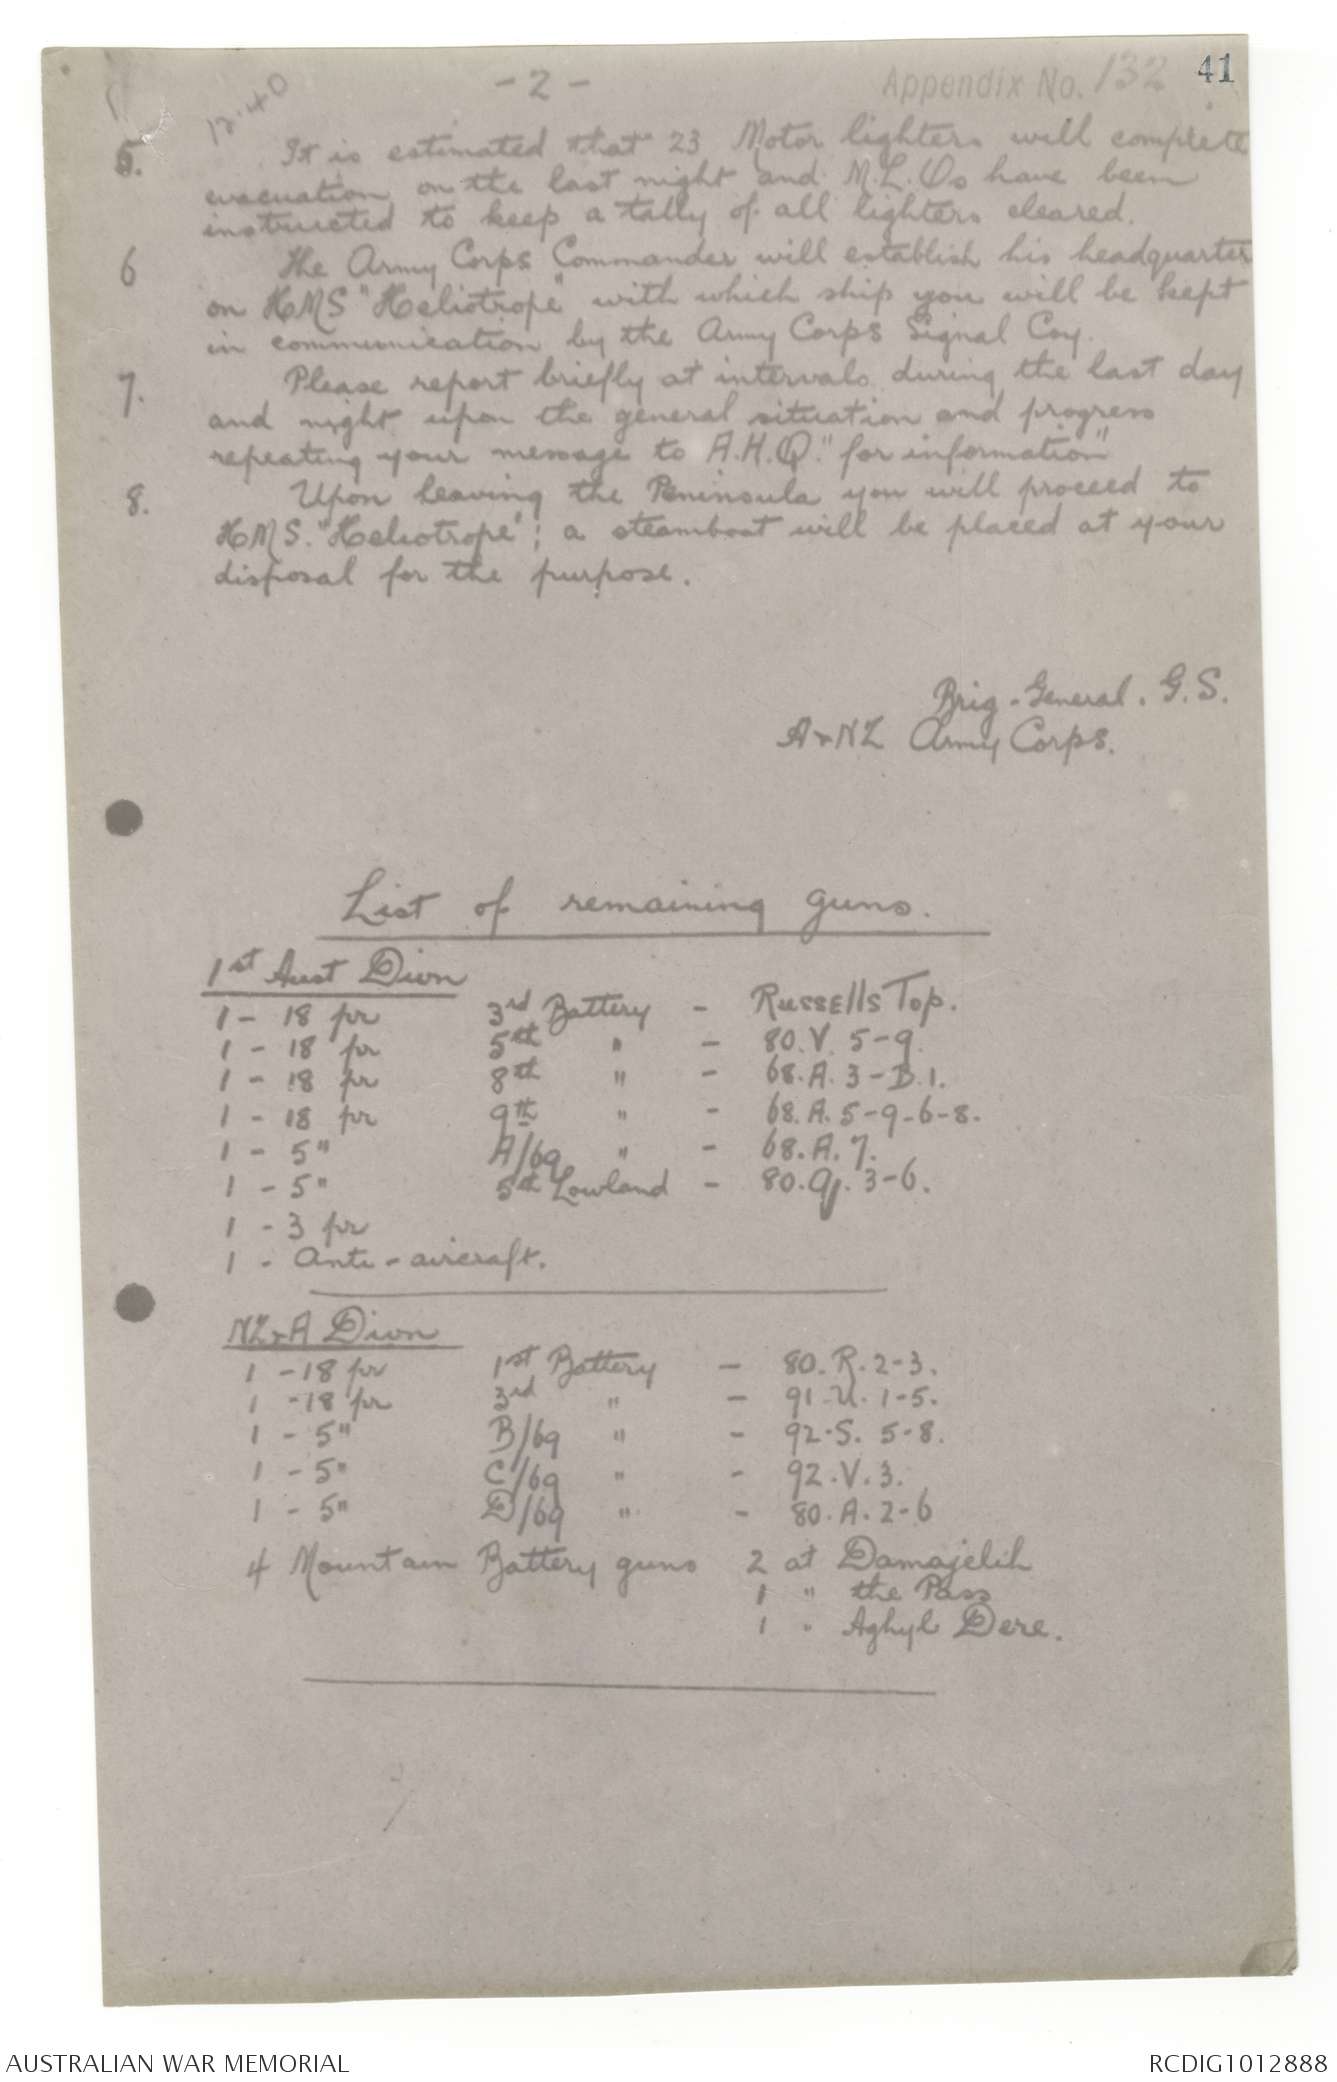 Appendix No. 132 41
- 2 -
12.40
5. It is estimated that 23 Motor lighters will complete
evacuation on the last night and M.L.Os have been
instructed to keep a tally of all lighters cleared.
6 The Army Corps Commander will establish his headquarters
on HMS "Heliotrope" with which ship you will be kept
in communication by the Army Corps Signal Coy.
7. Please report briefly at intervals during the last day
and night upon the general situation and progress
repeating your message to A.H.Q. "for information"
8. Upon leaving the Peninsula you will proceed to
HMS. "Heliotrope"; a steamboat will be placed at your
disposal for the purpose.
Brig-General. G.S.
A+NZ Army Corps.
List of remaining guns.
1st Aust Divn
1 - 18 pr 3rd Battery - Russells Top.
1 - 18 pr 5th " - 80.V. 5-9.
1 - 18 pr 8th " - 68.A. 3-B.1.
1 - 18 pr 9th " - 68.A. 5-9-6-8.
1 - 5" A/69 " - 68.A.7.
1 - 5" 5th Lowland - 80.Q. 3-6.
1 - 3 pr
1 - Anti-aircraft.
NZ+A Divn
1 - 18 pr 1st Battery - 80.R.2-3.
1 - 18 pr 3rd " - 91.U. 1-5.
1 - 5" B/69 " - 92.S. 5-8.
1 - 5" C/69 " - 92.V.3.
1 - 5" D/69 " - 80.A.2-6
4 Mountain Battery guns 2 at Damajelik
1 " the Pass
1 " Aghyl Dere.
AUSTRALIAN WAR MEMORIAL RCDIG1012888